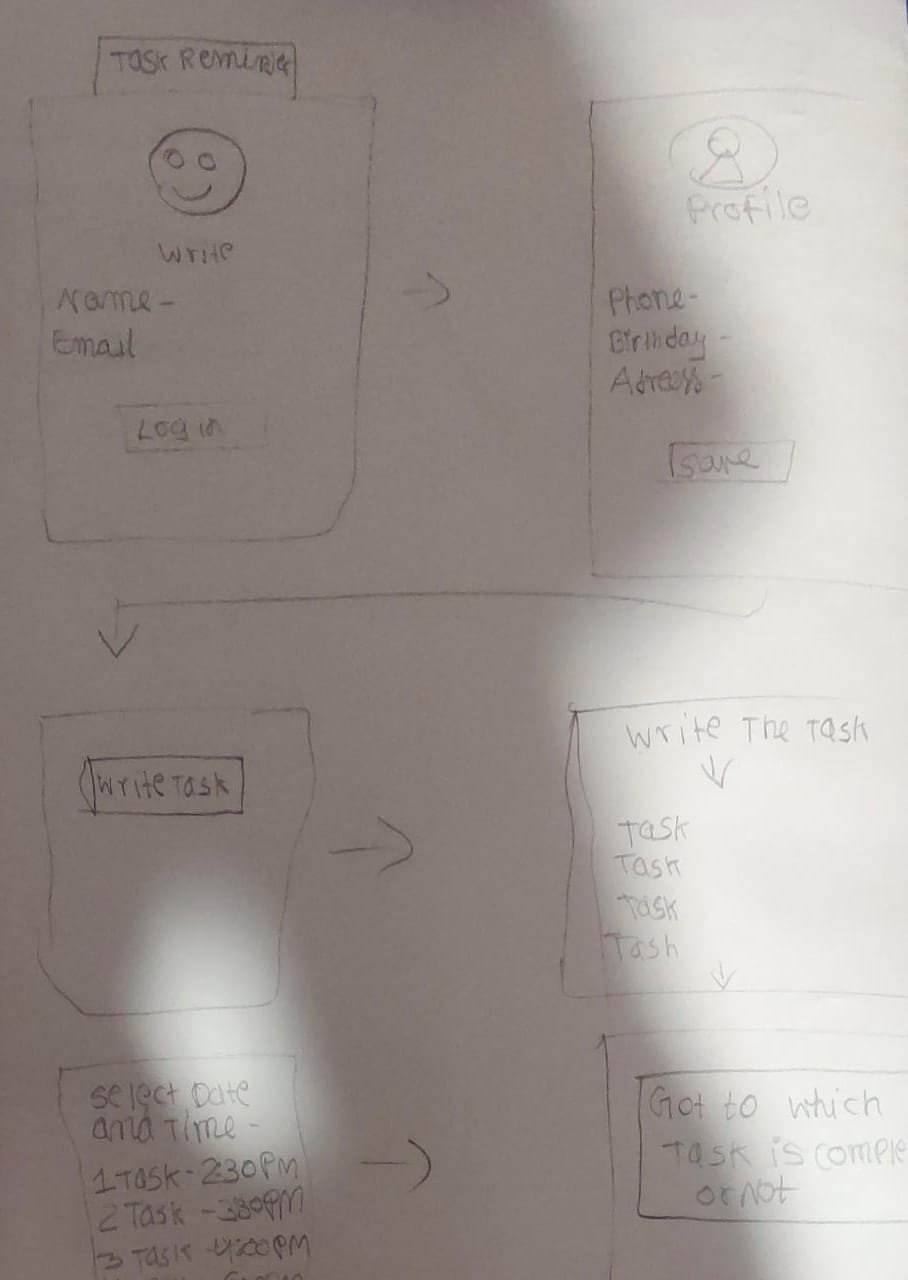 Task Reminder
Write
Name -
Email
Log in
Profile
Phone -
Birthday -
Adress -
Save
Write Task
Write The Task
Task
Task
Task
Tash
Select Date
and Time -
1 Task - 2:30 PM
2 Task - 3:30 PM
3 Task - 4:00 PM
Got to which
Task is comple
or Not